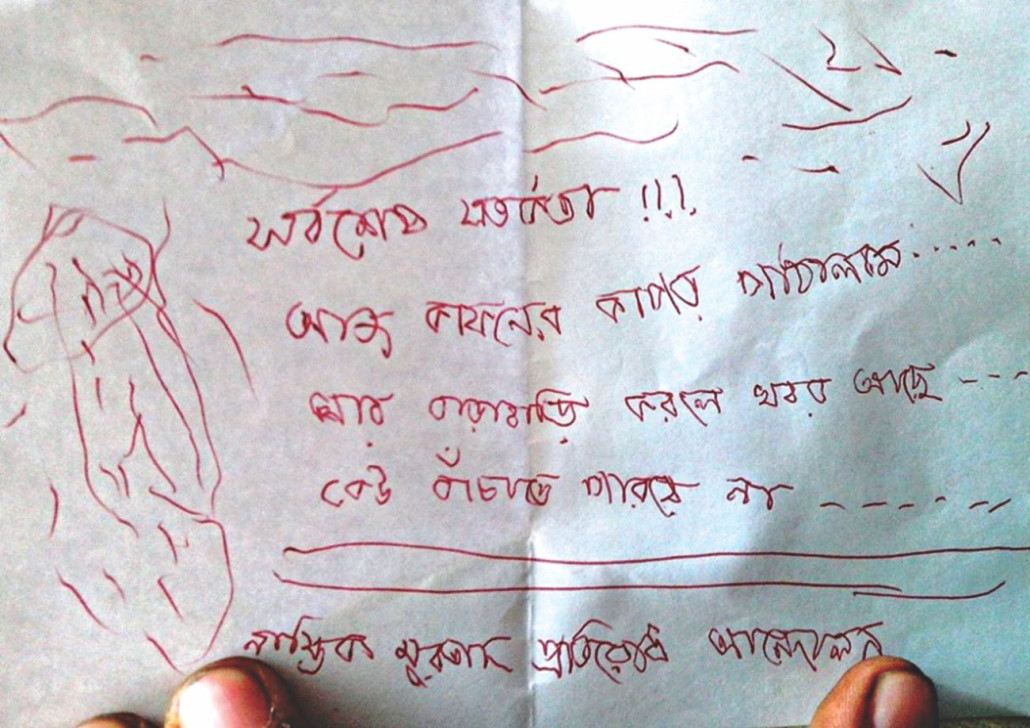 সর্বশেষ সতর্কতা !!!
আজ কাফনের কাপর পাঠালাম.....
আর বাড়াবাড়ি করলে খবর আছে ---
কেউ বাঁচাতে পারবে না ------
নাস্তিক মুরতাদ প্রতিরোধ আন্দোলন